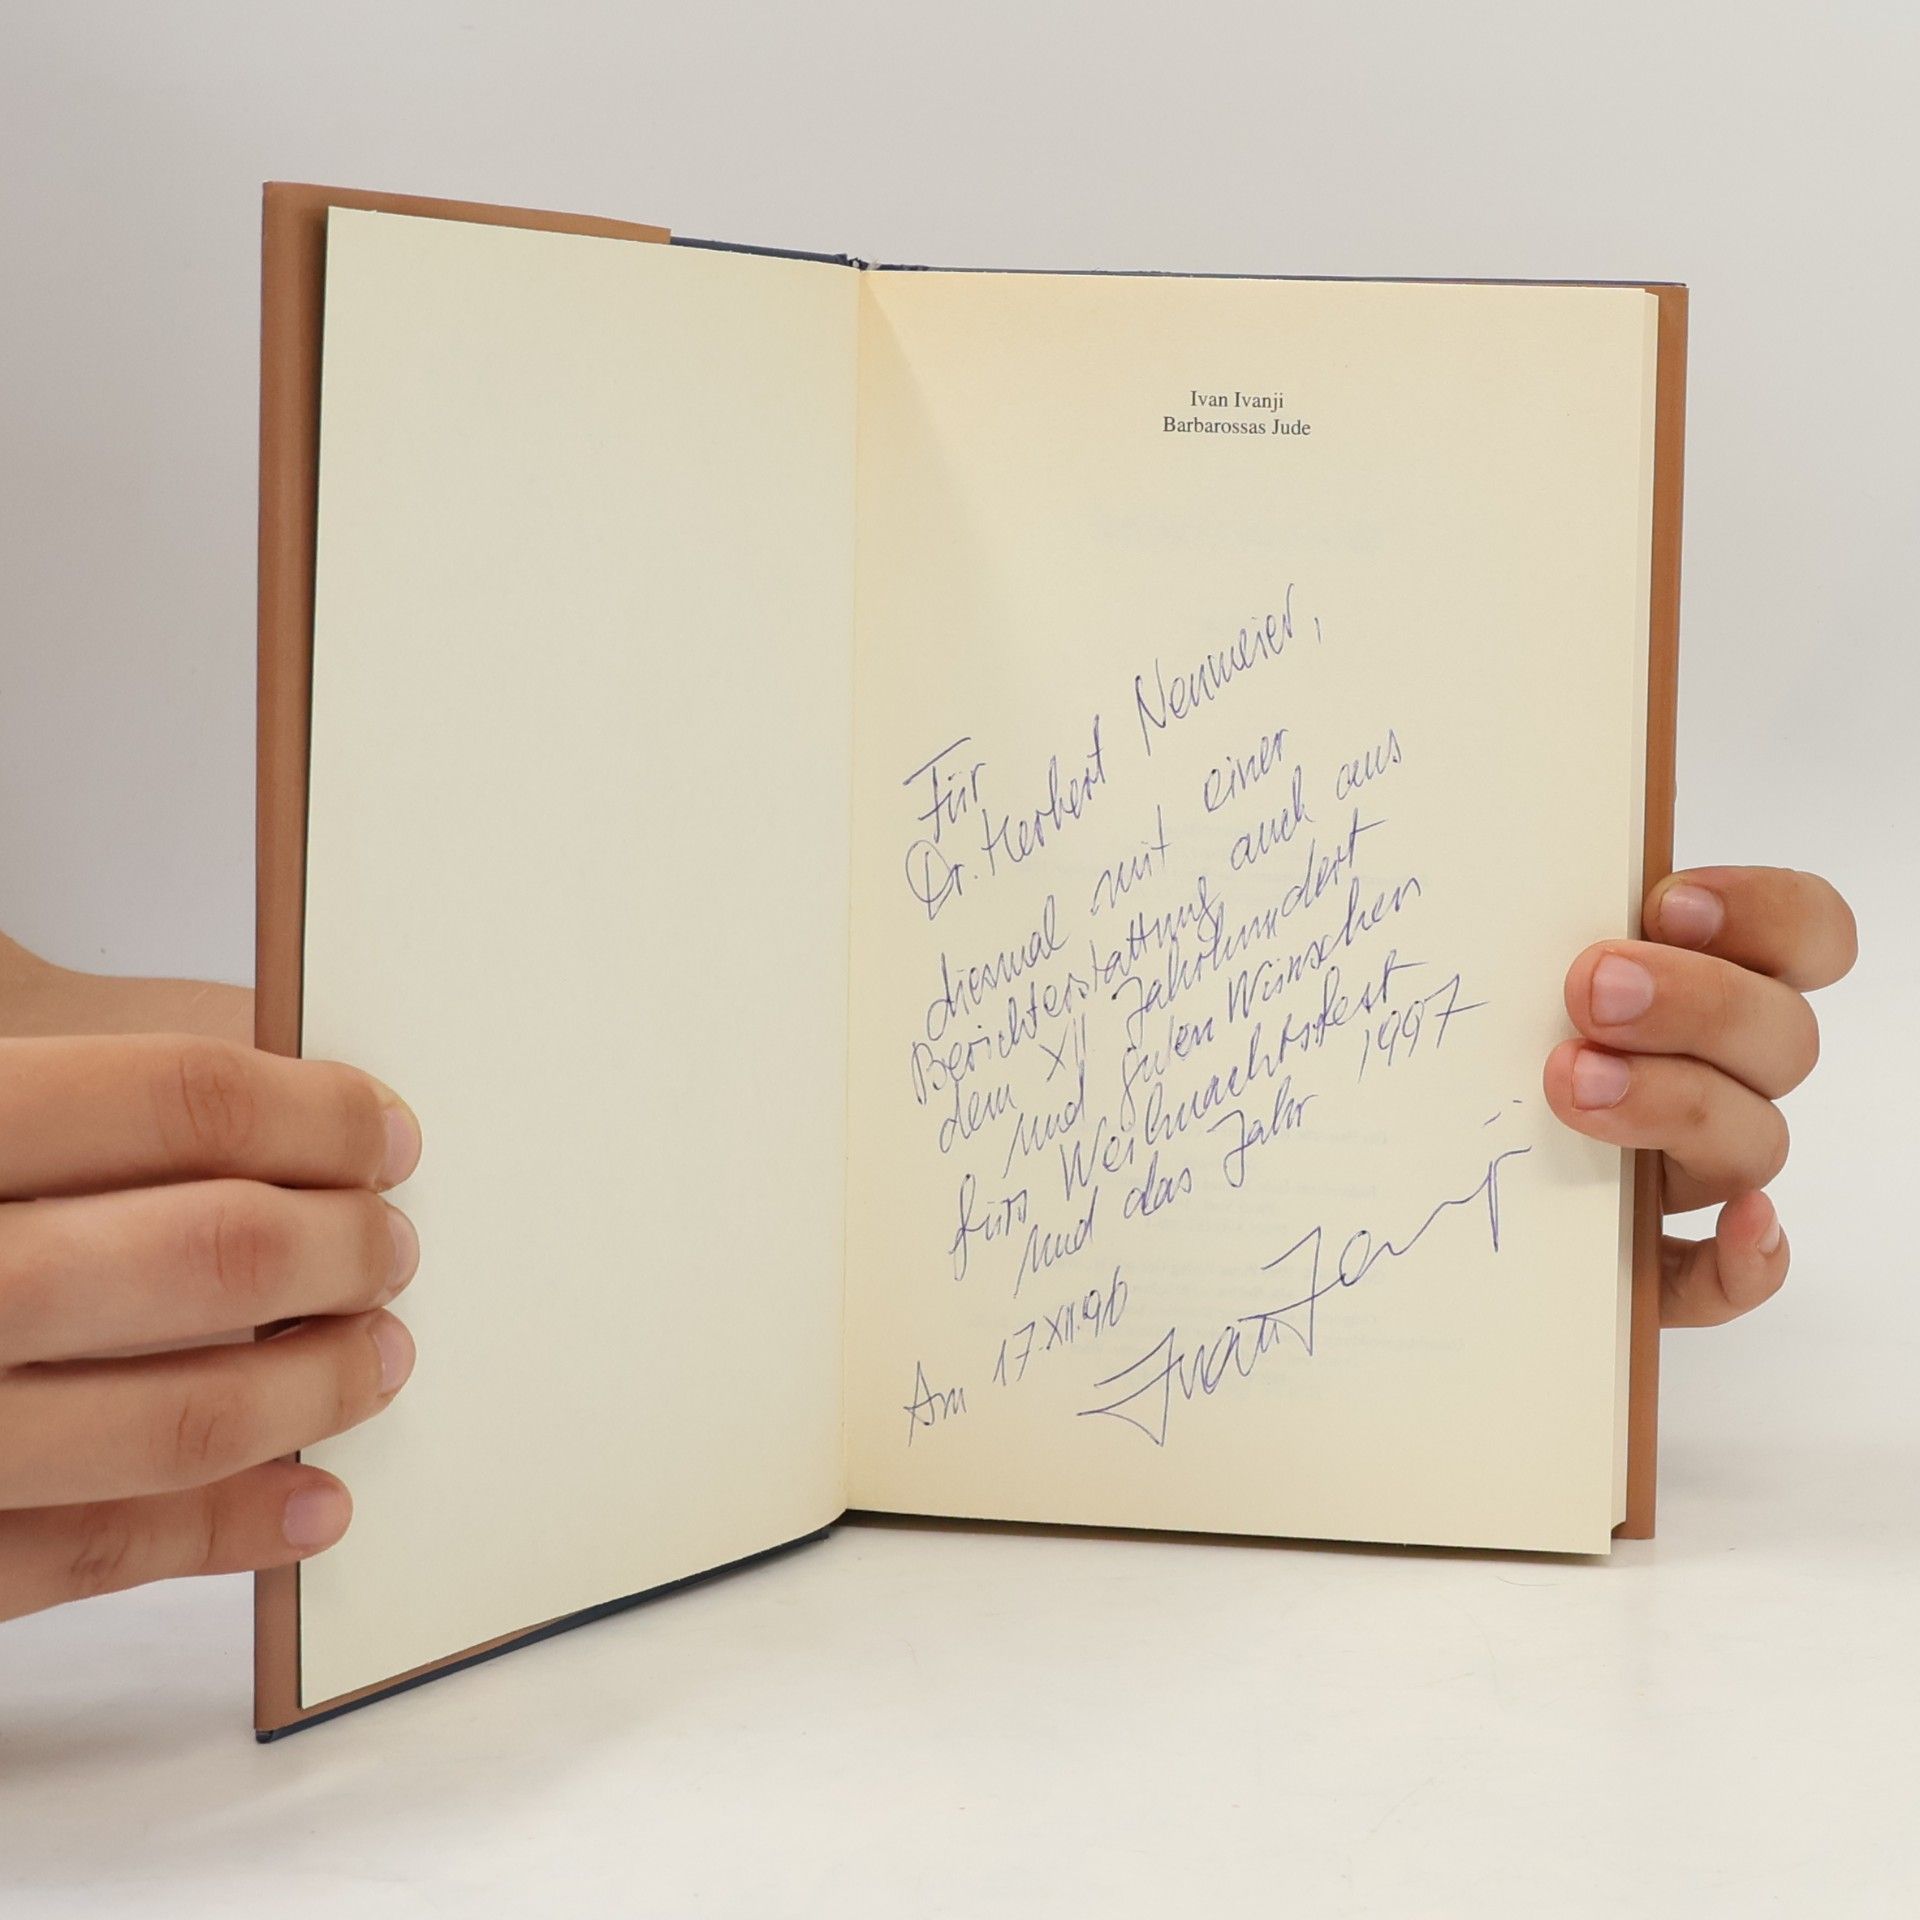 Ivan Ivanji
Barbarossas Jude
Für
Dr. Herbert Neumeier,
diesmal mit einer
Berichterstattung auch aus
dem XII Jahrhundert
und guten Wünschen
fürs Weihnachtsfest
und das Jahr 1997
Am 17.XII.96
Ivan Ivanji